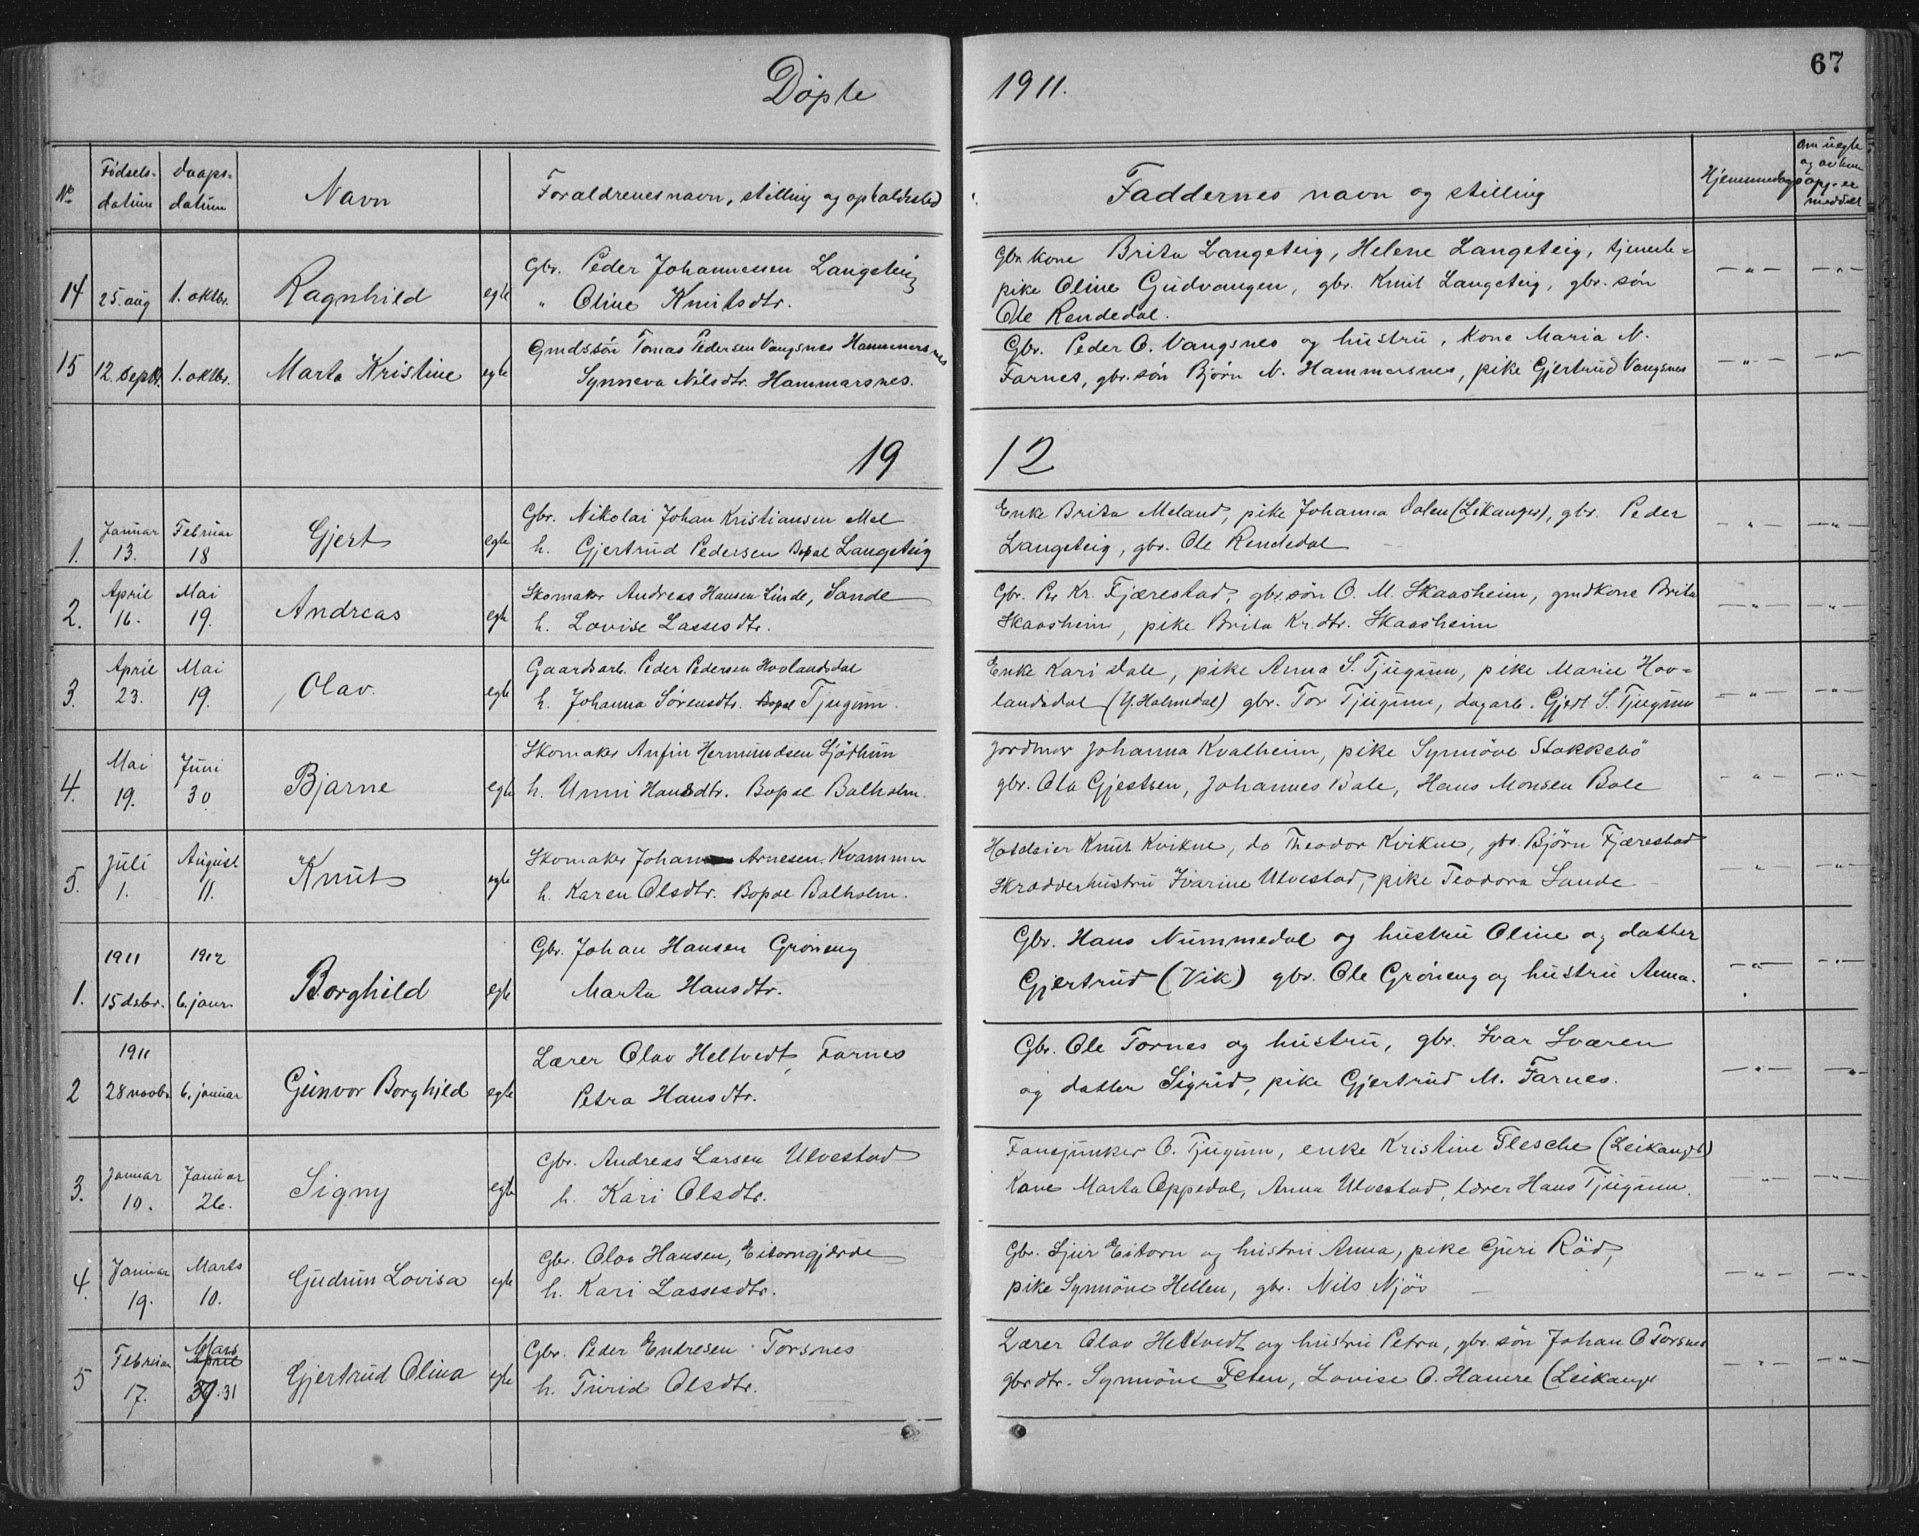 67
Döpte 1911.
No Fødsels- datum Daaps- datum Navn Foraldrenes navn, stilling og opholdssted Faddernes navn og stilling Hjemmedaap Om uegte og av hvem opg. er meddelt
Gbr. Peder Johannessen Langeteig Gbr.kone Brita Langeteig, Helene Langeteig, tjeneste-
14 25. aug 1. oktbr. Ragnhild egte " Oline Knutsdtr. pike Oline Gudvangen, gbr. Knut Langeteig, gbr. søn —"— —"—
Ole Rendedal.
Gmdssön Tomas Pedersen Vangsnes Hammersnes Gbr. Peder O. Vangsnes og hustru, Kone Maria N.
15 12. Septbr. 1. oktbr. Marta Kristine egte Synneva Nilsdtr. Hammarsnes. Farnes, gbr. søn Bjørn N. Hammersnes, pike Gjertrud Vangsnes —"— —"—
1912
Januar Februar Gbr. Nikolai Johan Kristiansen Mel Enke Brita Meland, pike Johanna Dalen (Leikanger), gbr. Peder
1. 13. 18 Gjert egte h. Gjertrud Pedersen Bopæl Langeteig Langeteig, gbr. Ole Rendedal —"— —"—
April Mai Skomaker Andreas Hansen Linde, Sande Gbr. Per Kr. Fjærestad, gbr.søn O. M. Skaasheim, gmdkone Brita
2. 16. 19. Andreas egte h. Lovise Lassesdtr. Skaasheim, pike Brita Kr.dtr. Skaasheim —"— —"—
April Mai Gaardsarb. Peder Pedersen Hovlandsdal Enke Kari Dale, pike Anna S. Tjugum, pike Marie Hov-
3. 23. 19. Olav. egte h. Johanna Sørensdtr. Bopæl Tjugum. landsdal (Y. Holmedal) gbr. Tor Tjugum, dagarb. Gjert S. Tjugum —"— —"—
Mai Juni Skomaker Anfin Hermundsen Sjöthun Jordmor Johanna Kvalheim, pike Synnöve Stokkebö
4. 19. 30 Bjarne egte h. Unni Hansdtr. Bopæl Balholm. gbr. Ola Gjestsen, Johannes Bale, Hans Monsen Bale " —"—
Juli August Skomaker Johan Arnesen Kvamme Hoteleier Knut Kvikne, do Theodor Kvikne, gbr Bjørn Fjærestad
5. 1. 11. Knut egte h. Karen Olsdtr. Bopæl Balholm. Skrædderhustru Ivarine Ulvestad, pike Teodora Sande " —"—
1911 1912 Gbr. Johan Hansen Gröneng Gbr. Hans Nummedal og hustru Oline og datter
1. 15 dsbr. 6. janr. Borghild egte Marta Hansdtr. Gjertrud (Vik) gbr. Ole Gröneng og hustru Anna. —"— —"—
1911 Lærer Olav Heltvedt, Farnes Gbr. Ole Tornes og hustru, gbr. Ivar Sværen
2 28 novbr 6. januar Gunvor Borghild egte Petra Hansdtr. og datter Sigrid, pike Gjertrud M. Farnes. —"— —"—
Januar Januar Gbr. Andreas Larsen Ulvestad Fansjunker O. Tjugum, enke Kristine Flesche (Leikanger)
3. 10. 26. Signy egte h. Kari Olsdtr. Kone Marta Oppedal, Anna Ulvestad, lærer Hans Tjugum. " —"—
Januar Marts Gbr. Olav Hansen, Eitorngjærde Gbr. Sjur Eitorn og hustru Anna, pike Guri Röd,
4. 19. 10. Gudrun Lovisa egte h. Kari Lassesdtr. pike Synnöve Hellen, gbr. Nils Njös —"— —"—
Februar April Mars Gbr. Peder Endresen Torsnes Lærer Olav Heltvedt og hustru Petra, gbr. søn Johan O Torsnes
5 17. 31 Gjertrud Olina egte h. Turid Olsdtr. gbrdtr. Synnöve Feten, Lovise O. Hamre (Leikangr —"— —"—